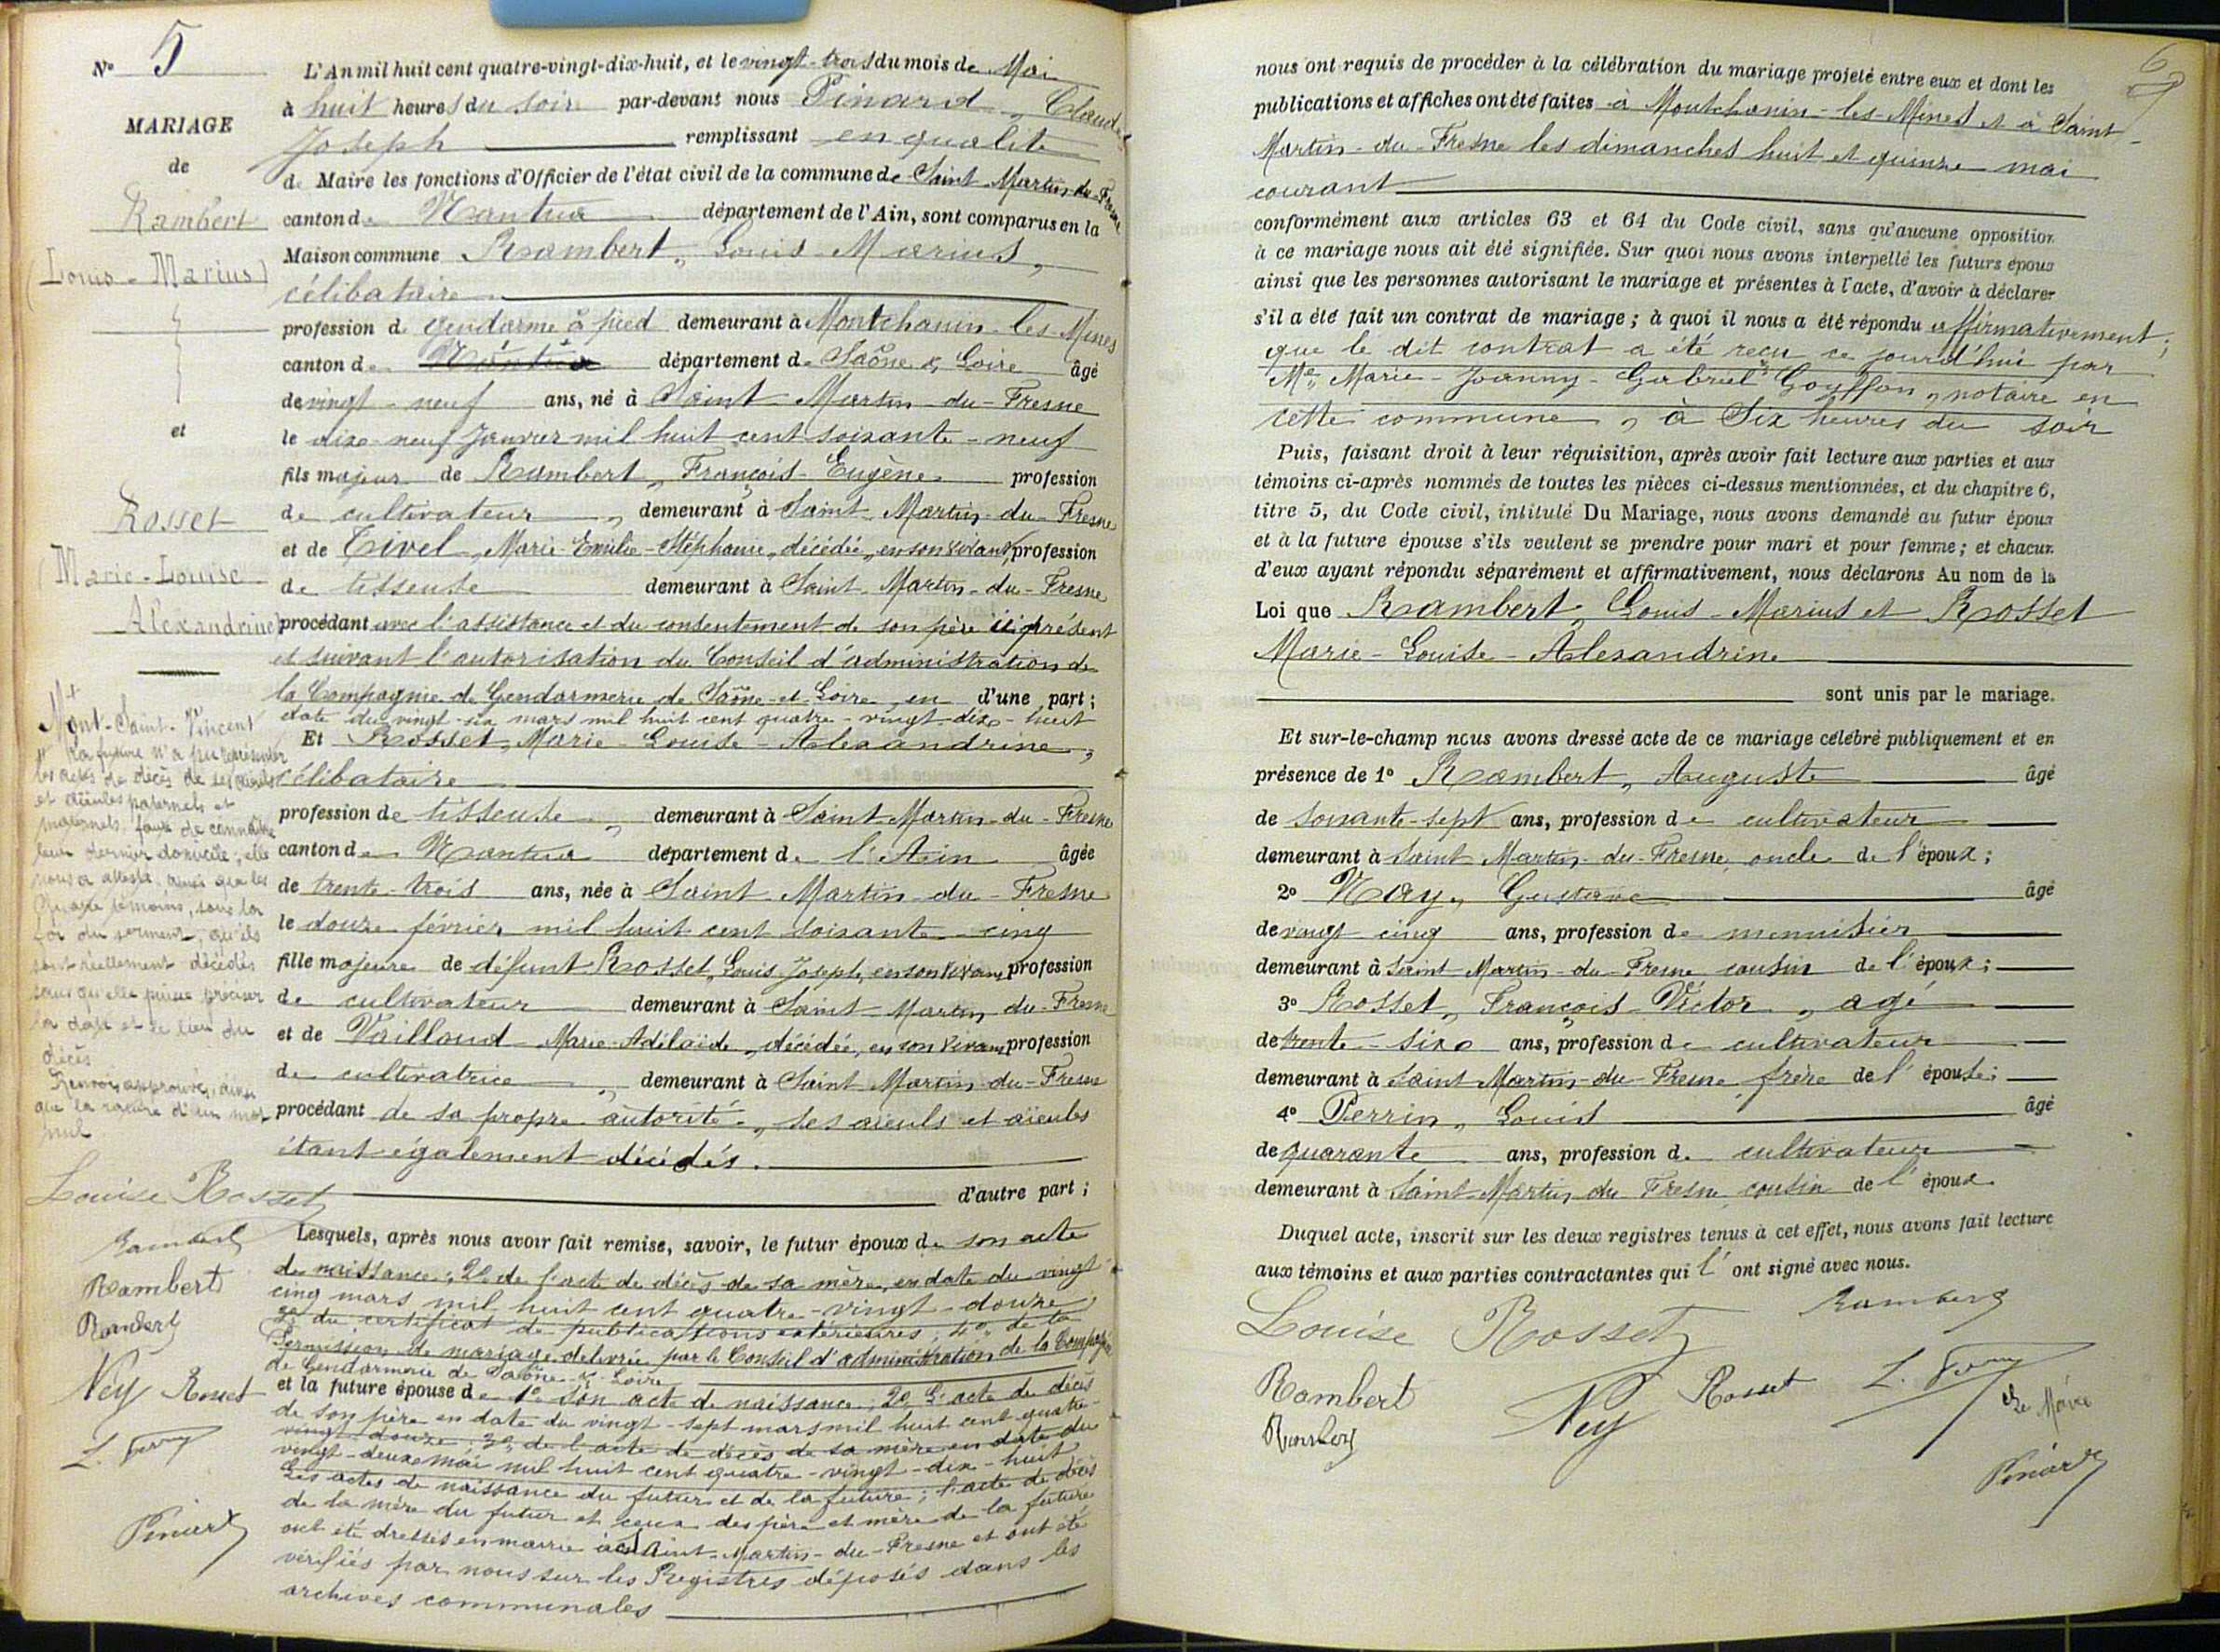 No 5
MARIAGE
de
Rambert
(Louis-Marius)
et
Rosset
(Marie-Louise
Alexandrine)
L'An mil huit cent quatre-vingt-dix-huit, et le vingt-trois du mois de Mai
à huit heures du soir par-devant nous Pinard, Claude
Joseph remplissant en qualité
de Maire les fonctions d'Officier de l'état civil de la commune de Saint Martin du Fresne
canton de Nantua département de l'Ain, sont comparus en la
Maison commune Rambert, Louis-Marius,
célibataire
profession de gendarme à pied demeurant à Montchanin-les-Mines
canton de Nantua département de Saône & Loire âgé
de vingt-neuf ans, né à Saint Martin-du-Fresne
le dix-neuf Janvier mil huit cent soixante-neuf
fils majeur de Rambert, François-Eugène profession
de cultivateur, demeurant à Saint-Martin-du-Fresne
et de Tivel, Marie Emilie-Stéphanie, décédée, en son vivant, profession
de tisseuse demeurant à Saint-Martin-du-Fresne
procédant avec l'assistance et du consentement de son père ici présent
et suivant l'autorisation du Conseil d'administration de
la Compagnie de Gendarmerie de Saône-et-Loire, en d'une part;
date du vingt-six mars mil huit cent quatre-vingt-dix-huit
Et Rosset, Marie-Louise-Alexandrine,
célibataire
profession de tisseuse, demeurant à Saint Martin-du-Fresne
canton de Nantua département de l'Ain âgée
de trente-trois ans, née à Saint Martin-du-Fresne
le douze février mil huit cent soixante-cinq
fille majeure de défunt Rosset, Louis Joseph, en son vivant profession
de cultivateur demeurant à Saint-Martin-du-Fresne
et de Vaillaud Marie-Adélaïde, décédée, en son vivant profession
de cultivatrice, demeurant à Saint Martin-du-Fresne
procédant de sa propre autorité, ses aïeuls et aïeules
étant également décédés.
d'autre part;
Lesquels, après nous avoir fait remise, savoir, le futur époux de son acte
de naissance; 2º de l'acte de décès de sa mère, en date du vingt-
cinq mars mil huit cent quatre-vingt-douze;
3º du certificat de publications extérieures; 4º de la
Permission de mariage délivrée par le Conseil d'administration de la Compagnie
de Gendarmerie de Saône & Loire
et la future épouse de 1º son acte de naissance; 2º L'acte de décès
de son père en date du vingt-sept mars mil huit cent quatre-
vingt-douze; 3º de l'acte de décès de sa mère en date du
vingt-deux mai mil huit cent quatre-vingt-dix-huit
Les actes de naissance du futur et de la future; l'acte de décès
de la mère du futur et ceux des père et mère de la future
ont été dressés en mairie à Saint-Martin-du-Fresne et ont été
vérifiés par nous sur les Registres déposés dans les
archives communales
Mont-Saint-Vincent
La future n'a pu représenter
les actes de décès de ses aïeuls
et aïeules paternels et
maternels, faute de connaître
leur dernier domicile; elle
nous a attesté, ainsi que les
quatre témoins, sous la
foi du serment, qu'ils
sont réellement décédés
sans qu'elle puisse préciser
la date et le lieu du
décès
Renvois approuvés, ainsi
que la rature d'un mot
nul
Louise Rosset
Rambert
Rambert
Rambert
Ney Rosset
L. Perrin
Pinard
6
nous ont requis de procéder à la célébration du mariage projeté entre eux et dont les
publications et affiches ont été faites à Montchanin-les-Mines et à Saint-
Martin-du-Fresne les dimanches huit et quinze mai
courant
conformément aux articles 63 et 64 du Code civil, sans qu'aucune opposition
à ce mariage nous ait été signifiée. Sur quoi nous avons interpellé les futurs époux
ainsi que les personnes autorisant le mariage et présentes à l'acte, d'avoir à déclarer
s'il a été fait un contrat de mariage; à quoi il nous a été répondu affirmativement;
que le dit contrat a été reçu ce jourd'hui par
Me, Marie-Joanny-Gabriel Gouffon, notaire en
cette commune, à Six heures du soir
Puis, faisant droit à leur réquisition, après avoir fait lecture aux parties et aux
témoins ci-après nommés de toutes les pièces ci-dessus mentionnées, et du chapitre 6,
titre 5, du Code civil, intitulé Du Mariage, nous avons demandé au futur époux
et à la future épouse s'ils veulent se prendre pour mari et pour femme; et chacun
d'eux ayant répondu séparément et affirmativement, nous déclarons Au nom de la
Loi que Rambert, Louis-Marius et Rosset
Marie-Louise-Alexandrine
sont unis par le mariage.
Et sur-le-champ nous avons dressé acte de ce mariage célébré publiquement et en
présence de 1º Rambert, Auguste âgé
de soixante-sept ans, profession de cultivateur
demeurant à Saint Martin-du-Fresne, oncle de l'époux;
2º Nay, Gustave âgé
de vingt cinq ans, profession de menuisier
demeurant à Saint-Martin-du-Fresne cousin de l'époux;
3º Rosset, François-Victor, âgé
de trente-six ans, profession de cultivateur
demeurant à Saint Martin-du-Fresne, frère de l'épouse;
4º Perrin, Louis âgé
de quarante ans, profession de cultivateur
demeurant à Saint-Martin du Fresne cousin de l'époux
Duquel acte, inscrit sur les deux registres tenus à cet effet, nous avons fait lecture
aux témoins et aux parties contractantes qui l'ont signé avec nous.
Louise Rosset Rambert
Rambert Ney Rosset L. Perrin
Rambert Le Maire
Pinard